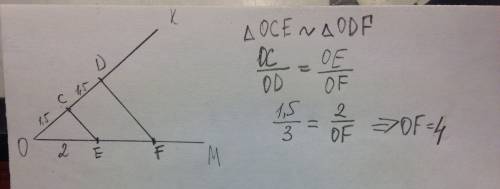 K
D
1,5
C
1,5
O
2
E
F
M
△OCE ~ △ODF
OC/OD = OE/OF
1,5/3 = 2/OF ⇒ OF=4